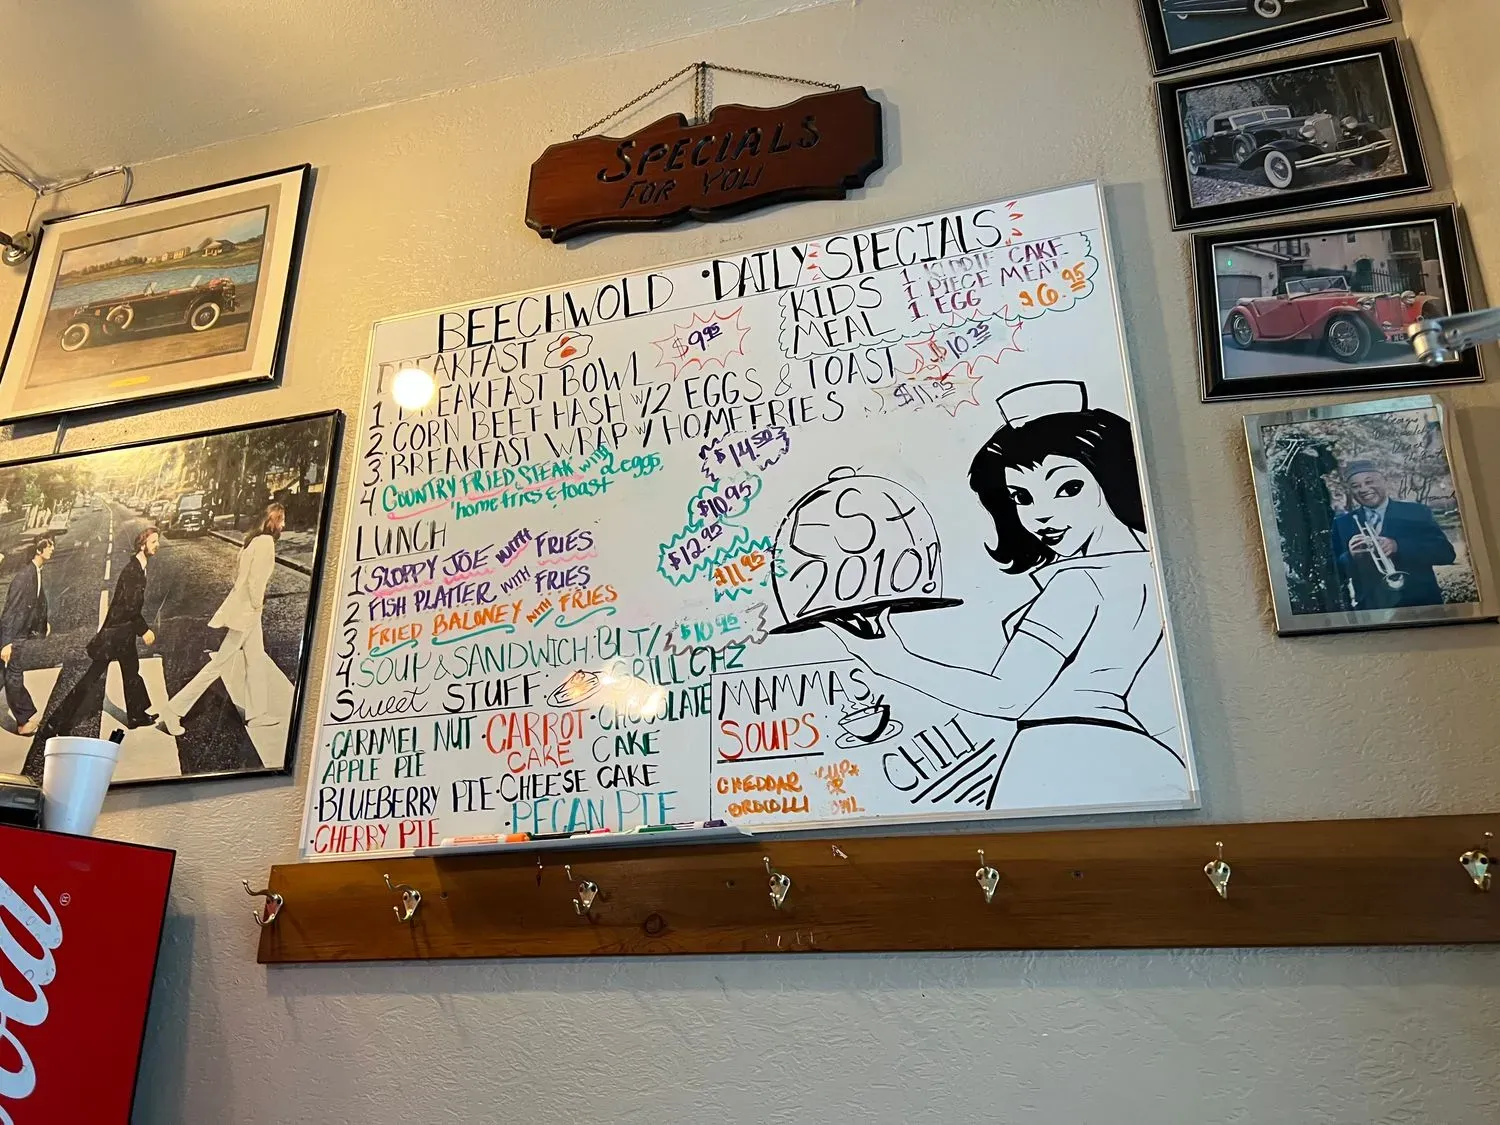 SPECIALS
FOR YOU
BEECHWOLD • DAILY SPECIALS
BREAKFAST
1. BREAKFAST BOWL $9.95
2. CORN BEEF HASH w/2 EGGS & TOAST $10.25
3. BREAKFAST WRAP w/ HOMEFRIES $11.95
4 COUNTRY FRIED STEAK with 2 eggs,
home fries & toast $14.50
KIDS MEAL
1 KIDDIE CAKE
1 PIECE MEAT
1 EGG $6.95
LUNCH
1 SLOPPY JOE with FRIES $10.95
2 FISH PLATTER WITH FRIES $12.95
3. FRIED BALONEY with FRIES $11.95
4. SOUP & SANDWICH: BLT/ $10.95
GRILL CHZ
Sweet STUFF:
•CARAMEL NUT
APPLE PIE
•CARROT
CAKE
•CHOCOLATE
CAKE
•BLUEBERRY PIE
•CHEESE CAKE
•CHERRY PIE
•PECAN PIE
MAMMAS
SOUPS
CHEDDAR
BROCOLLI
CUP
OR
BOWL
CHILI
EST
2010!